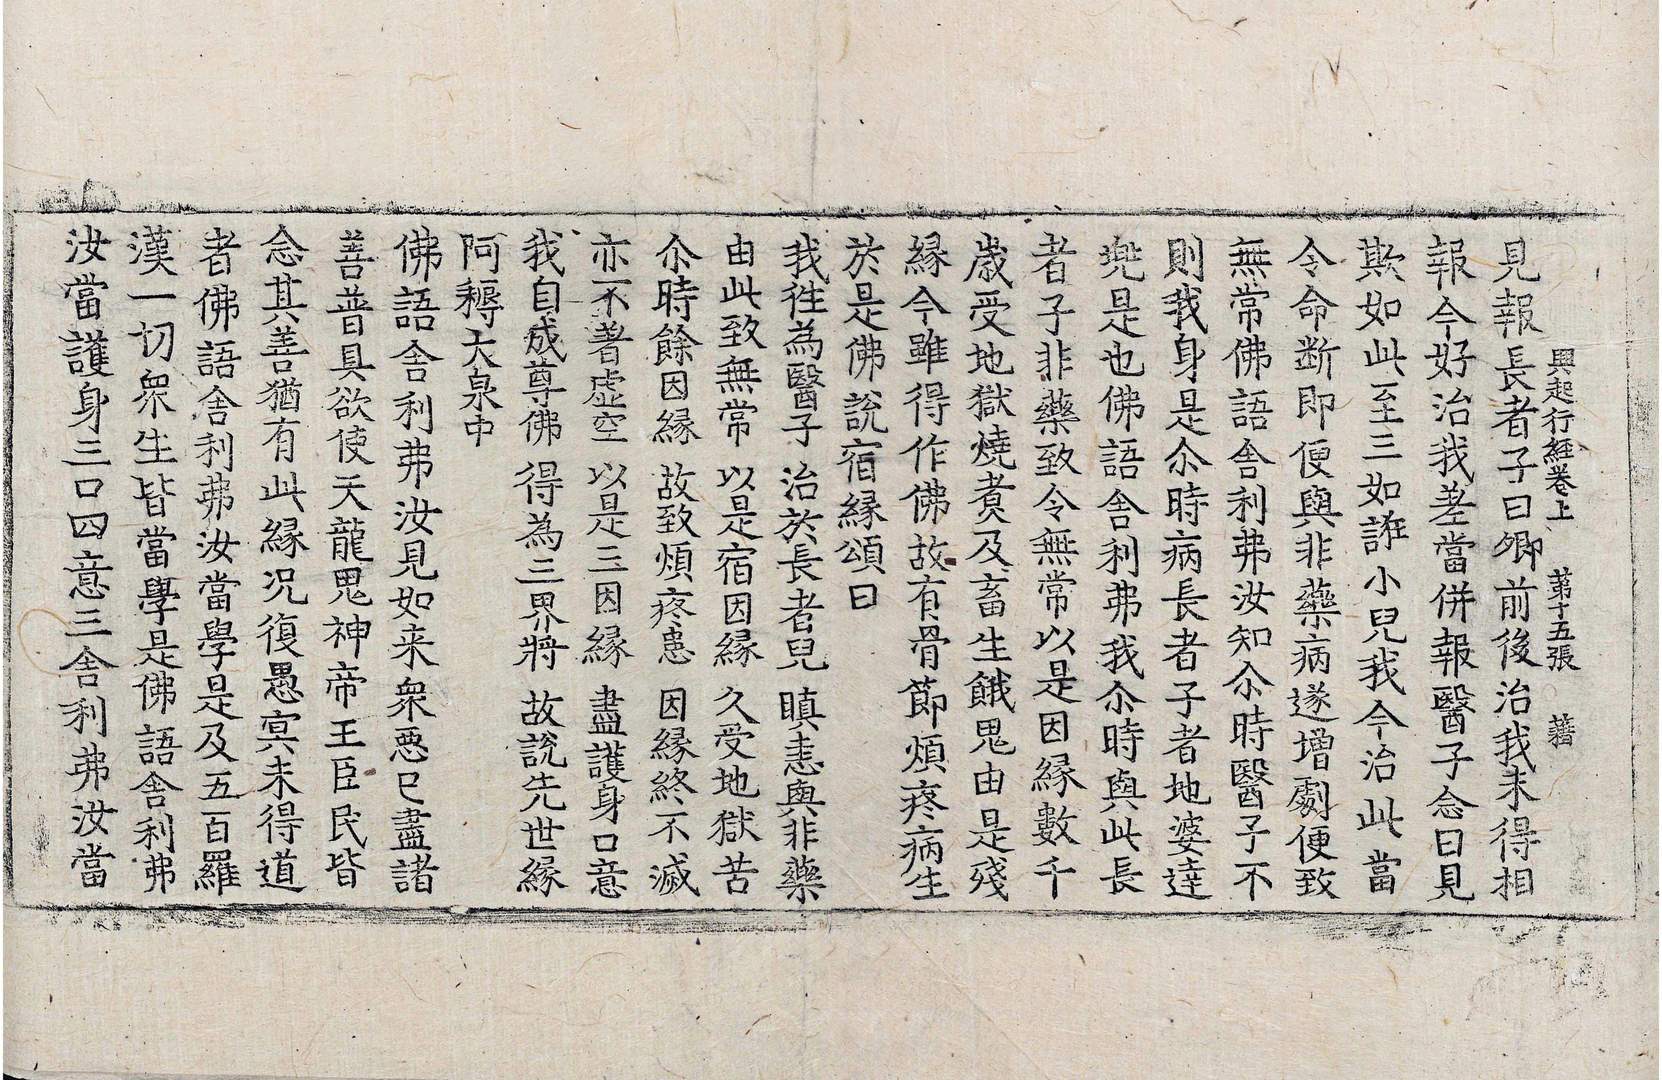 興起行經卷上 第十五張 藉
見報長者子曰卿前後治我未得相
報今好治我差當併報醫子念曰見
欺如此至三如誑小兒我今治此當
令命断即便與非藥病遂增劇便致
無常佛語舍利弗汝知尒時醫子不
則我身是尒時病長者子者地婆達
兠是也佛語舍利弗我尒時與此長
者子非藥致令無常以是因緣數千
歲受地獄燒煑及畜生餓鬼由是殘
緣今雖得作佛故有骨節煩疼病生
於是佛說宿緣頌曰
我徃為醫子 治於長者兒 瞋恚與非藥
由此致無常 以是宿因緣 久受地獄苦
尒時餘因緣 故致煩疼患 因緣終不滅
亦不著虛空 以是三因緣 盡護身口意
我自成尊佛 得為三界將 故說先世緣
阿耨大泉中
佛語舍利弗汝見如来衆惡已盡諸
善普具欲使天龍鬼神帝王臣民皆
念其善猶有此緣况復愚冥未得道
者佛語舍利弗汝當學是及五百羅
漢一切衆生皆當學是佛語舍利弗
汝當護身三口四意三舍利弗汝當